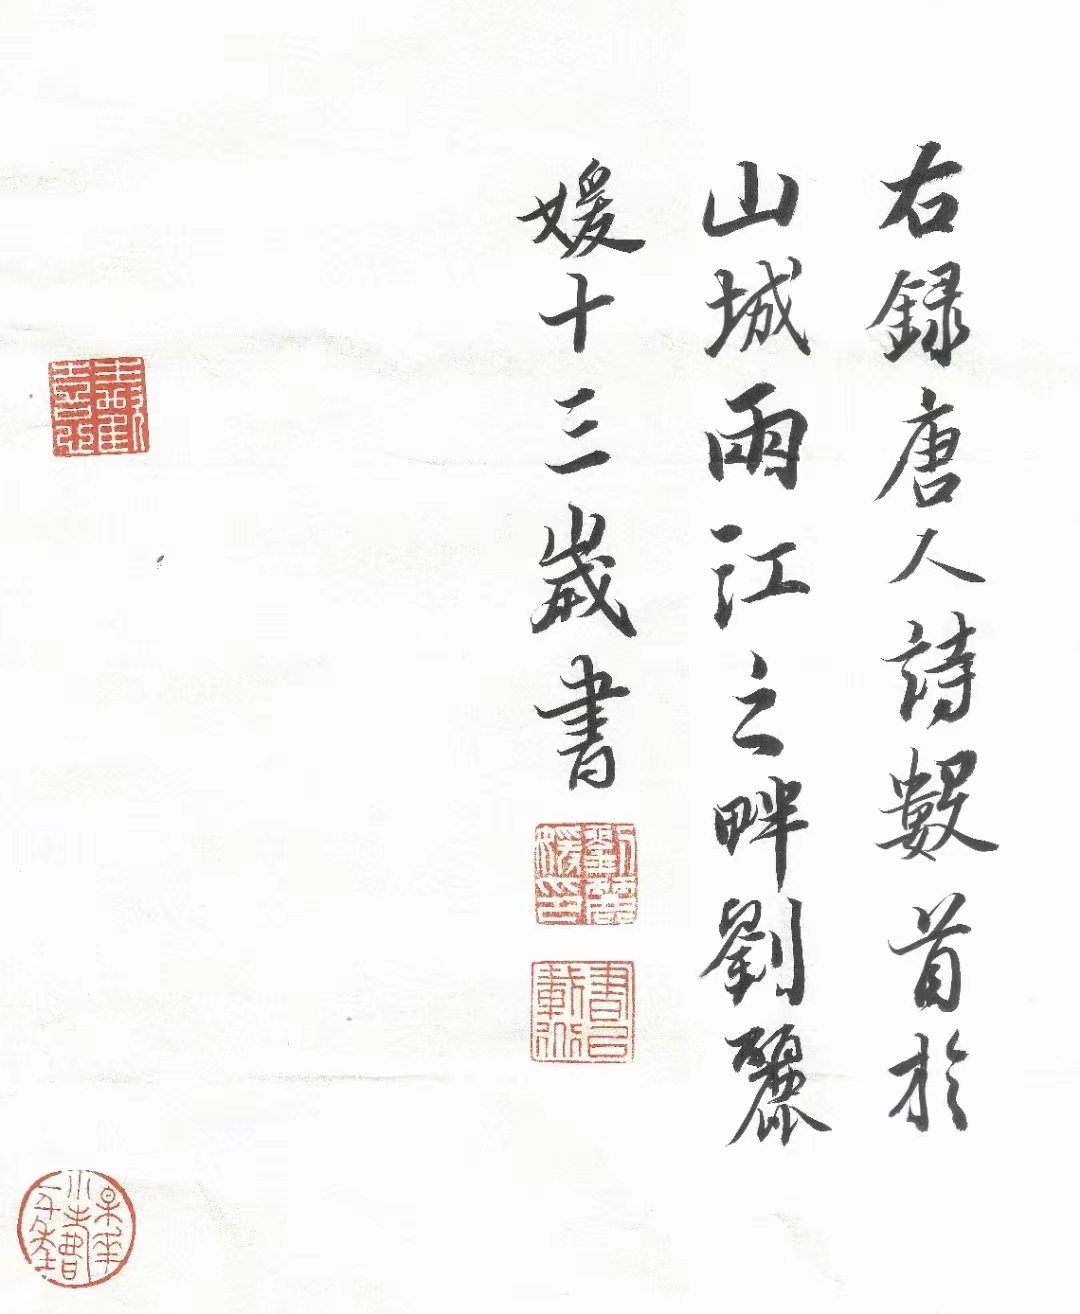 右録唐人詩數首於
山城雨江之畔劉麗
媛十三歲書